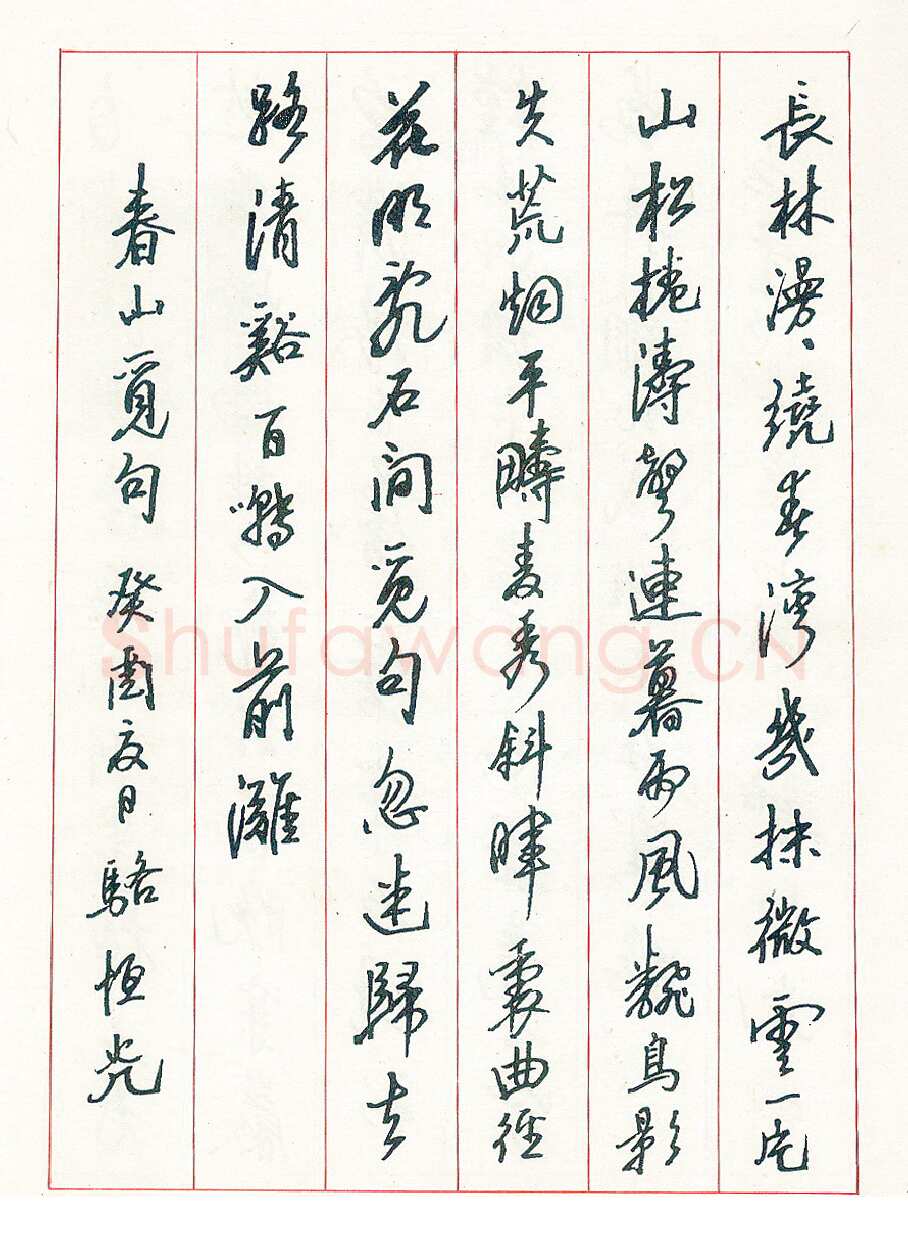 長林漫、繞春灣幾抹微雲一片
山松捲濤聲連暮雨風飜鳥影
失荒烟平疇麥秀斜暉裏曲徑
花明亂石间覓句忽迷歸去
路清谿百囀入前灘
春山覓句 癸酉夏日 駱恒光
Shufawang.CN